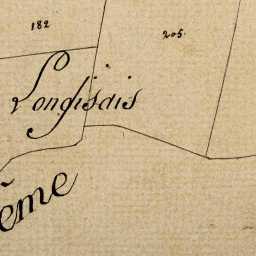 182
205
Longisais
ème